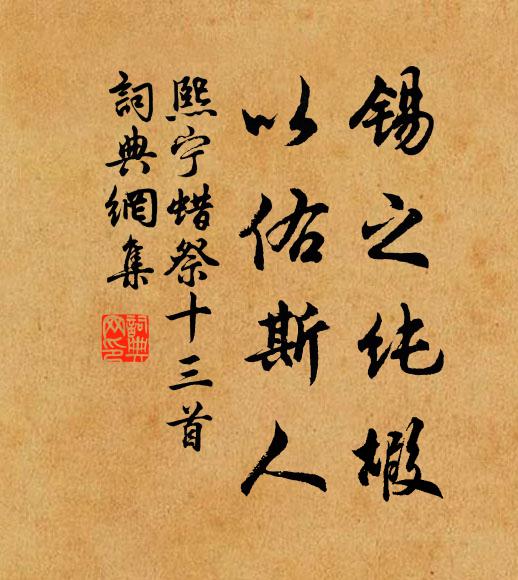 锡之纯椴
以佑斯人
熙宁蜡祭十三首
詞典網集
詞典网印